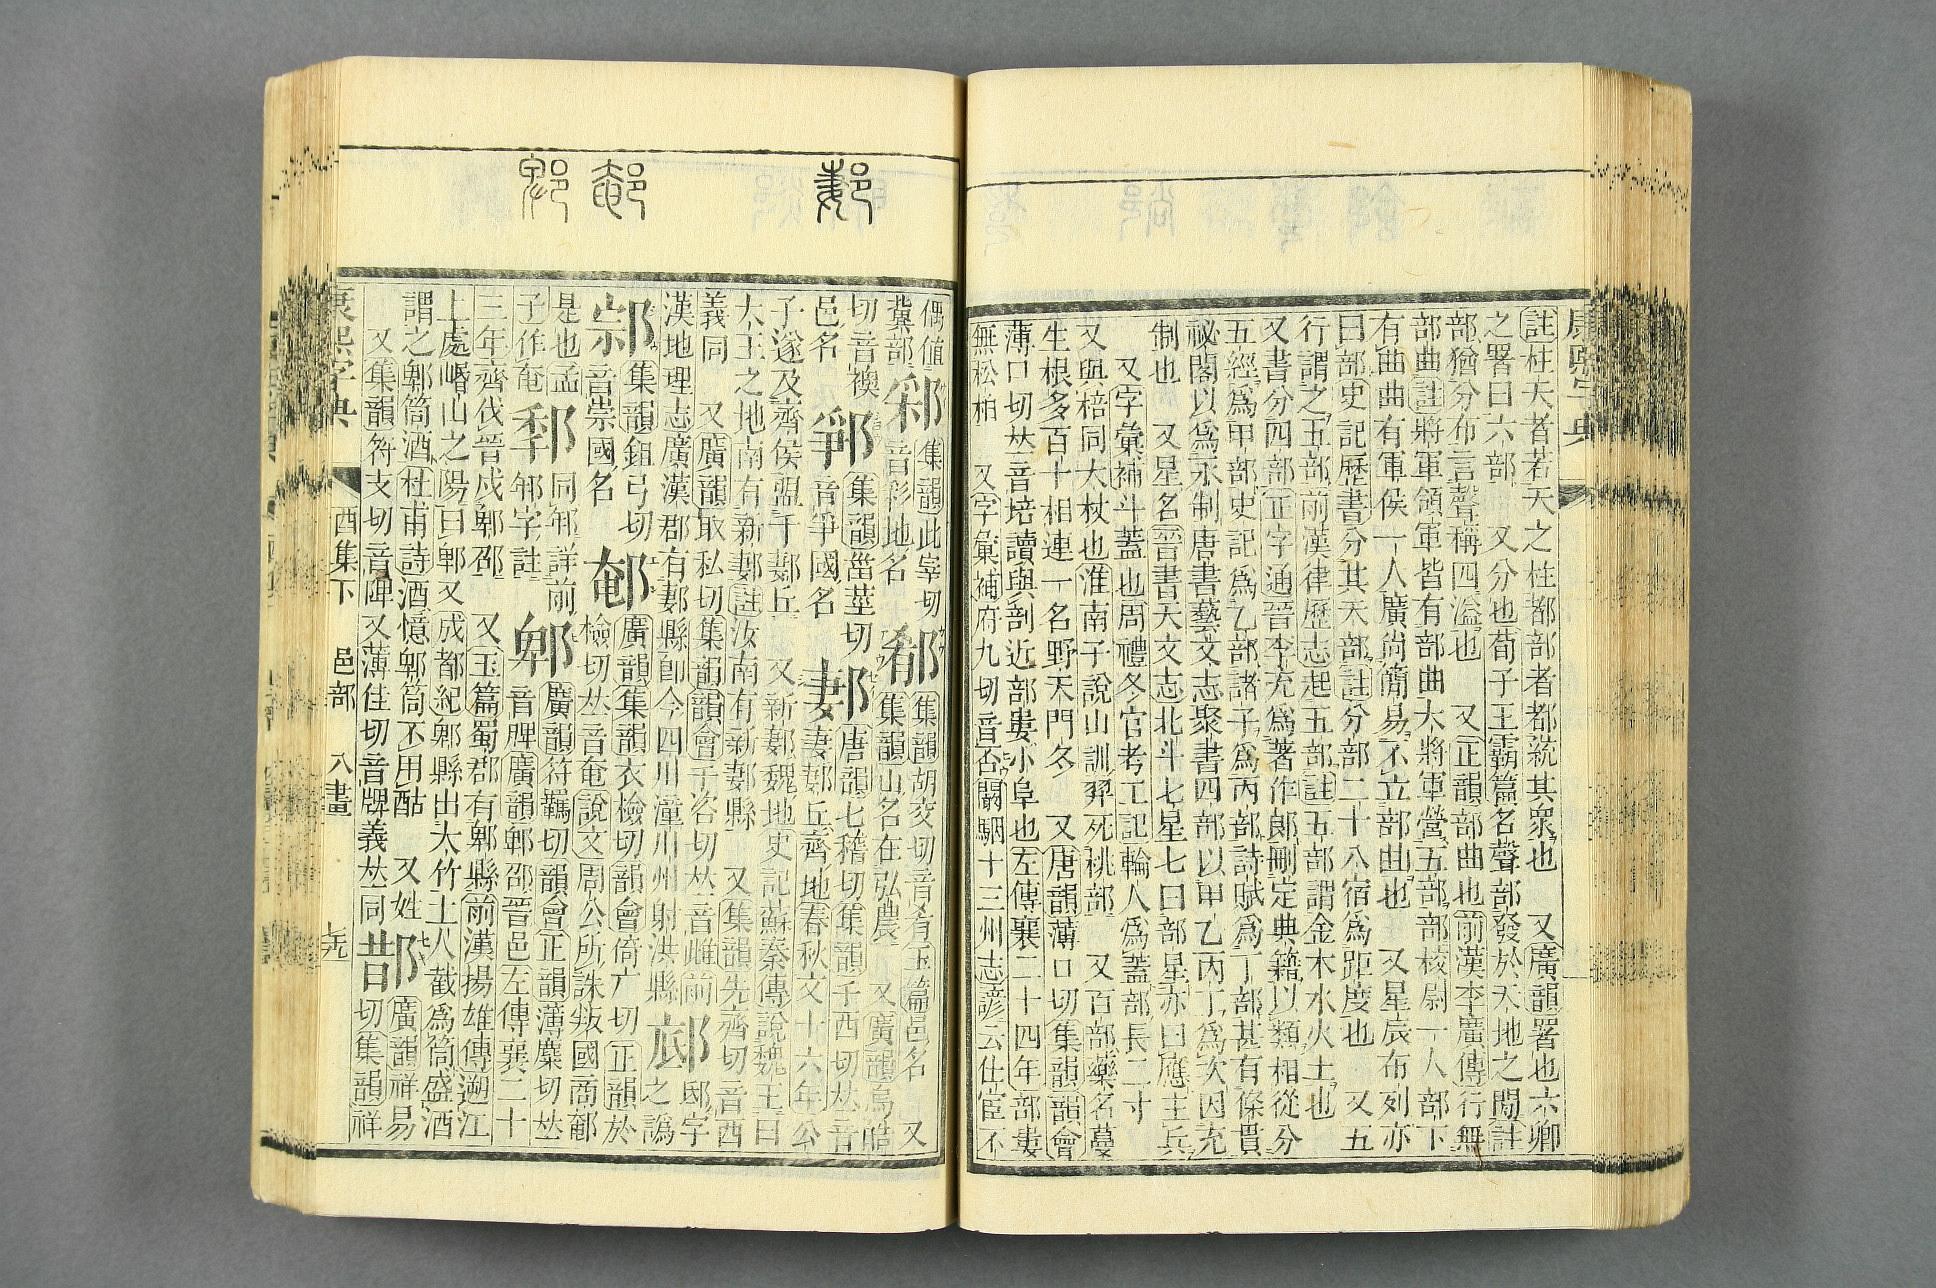 康熙字典
註柱天者若天之柱都部者都統其衆也　又廣韻署也六卿
之署曰六部　又分也荀子王霸篇名聲部發於天地之閒註
部猶分布言聲稱四溢也　又正韻部曲也前漢李廣傳行無
部曲註將軍領軍皆有部曲大將軍營五部部校尉一人部下
有曲曲有軍侯一人廣尚簡易不立部曲也　又星辰布列亦
曰部史記歷書分其天部註分部二十八宿爲距度也　又五
行謂之五部前漢律歷志起五部註五部謂金木水火土也
又書分四部正字通晉李充爲著作郎刪定典籍以類相從分
五經爲甲部史記爲乙部諸子爲丙部詩賦爲丁部甚有條貫
祕閣以爲永制唐書藝文志聚書四部以甲乙丙丁爲次因充
制也　又星名晉書天文志北斗七星七曰部星亦曰應主兵
又字彙補斗蓋也周禮冬官考工記輪人爲蓋部長二寸
又與棓同大杖也淮南子說山訓羿死桃部　又百部藥名蔓
生根多百十相連一名野天門冬　又唐韻薄口切集韻韻會
薄口切𠀤音培讀與剖近部婁小阜也左傳襄二十四年部婁
無松柏　又字彙補府九切音否闞駰十三州志諺云仕宦不
偶値冀部
郣集韻此宰切音彩地名
郩集韻胡交切音肴玉篇邑名　又集韻山名在弘農　又廣韻烏皓切音襖
𨛰集韻甾莖切音爭國名
郪唐韻七稽切集韻千西切𠀤音妻郪丘齊地春秋文十六年公子遂及齊侯盟于郪丘　又新郪魏地史記蘇秦傳說魏王曰大王之地南有新郪註汝南有新郪縣　又集韻先齊切音西義同　又廣韻取私切集韻韻會千咨切𠀤音雌前漢地理志廣漢郡有郪縣卽今四川潼川州射洪縣
邸字之譌
集韻鉏弓切音崇國名
郁廣韻集韻衣檢切韻會倚亢切正韻於檢切𠀤音奄說文周公所誅叛國商郁是也孟子作奄
同邾詳前邾字註
郫廣韻符羈切韻會正韻蒲麋切𠀤音脾廣韻郫邵晉邑左傳襄二十三年齊伐晉戍郫邵　又玉篇蜀郡有郫縣前漢揚雄傳遡江上處崏山之陽曰郫又成都紀郫縣出大竹土人截爲筒盛酒謂之郫筒酒杜甫詩酒憶郫筒不用酤　又姓　又集韻符支切音陴又薄佳切音牌義𠀤同
廣韻祥易切集韻祥
康熙字典　酉集下　邑部　八畫